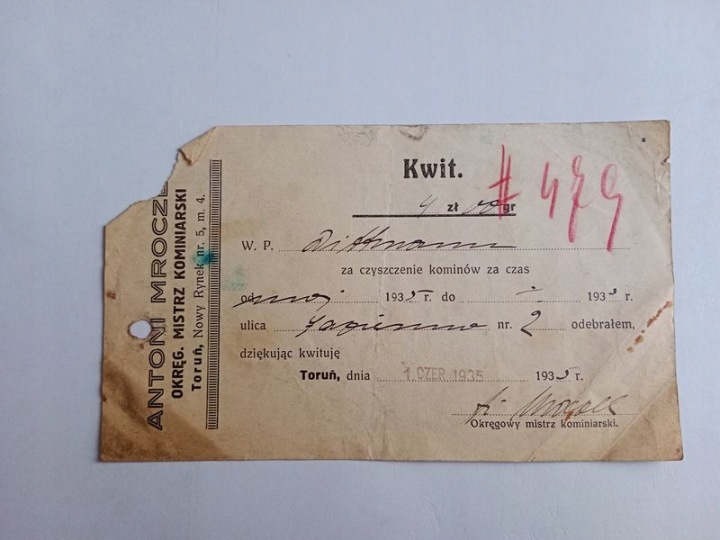 ANTONI MROCZE
OKRĘG. MISTRZ KOMINIARSKI
Toruń, Nowy Rynek nr. 5, m. 4.
Kwit.
# 479
4 zł 00 gr
W. P. Dittmann
za czyszczenie kominów za czas
od maj 1935 r. do 1935 r.
ulica nr. 2 odebrałem,
dziękując kwituję
Toruń, dnia 1. CZER. 1935 1935 r.
Okręgowy mistrz kominiarski.